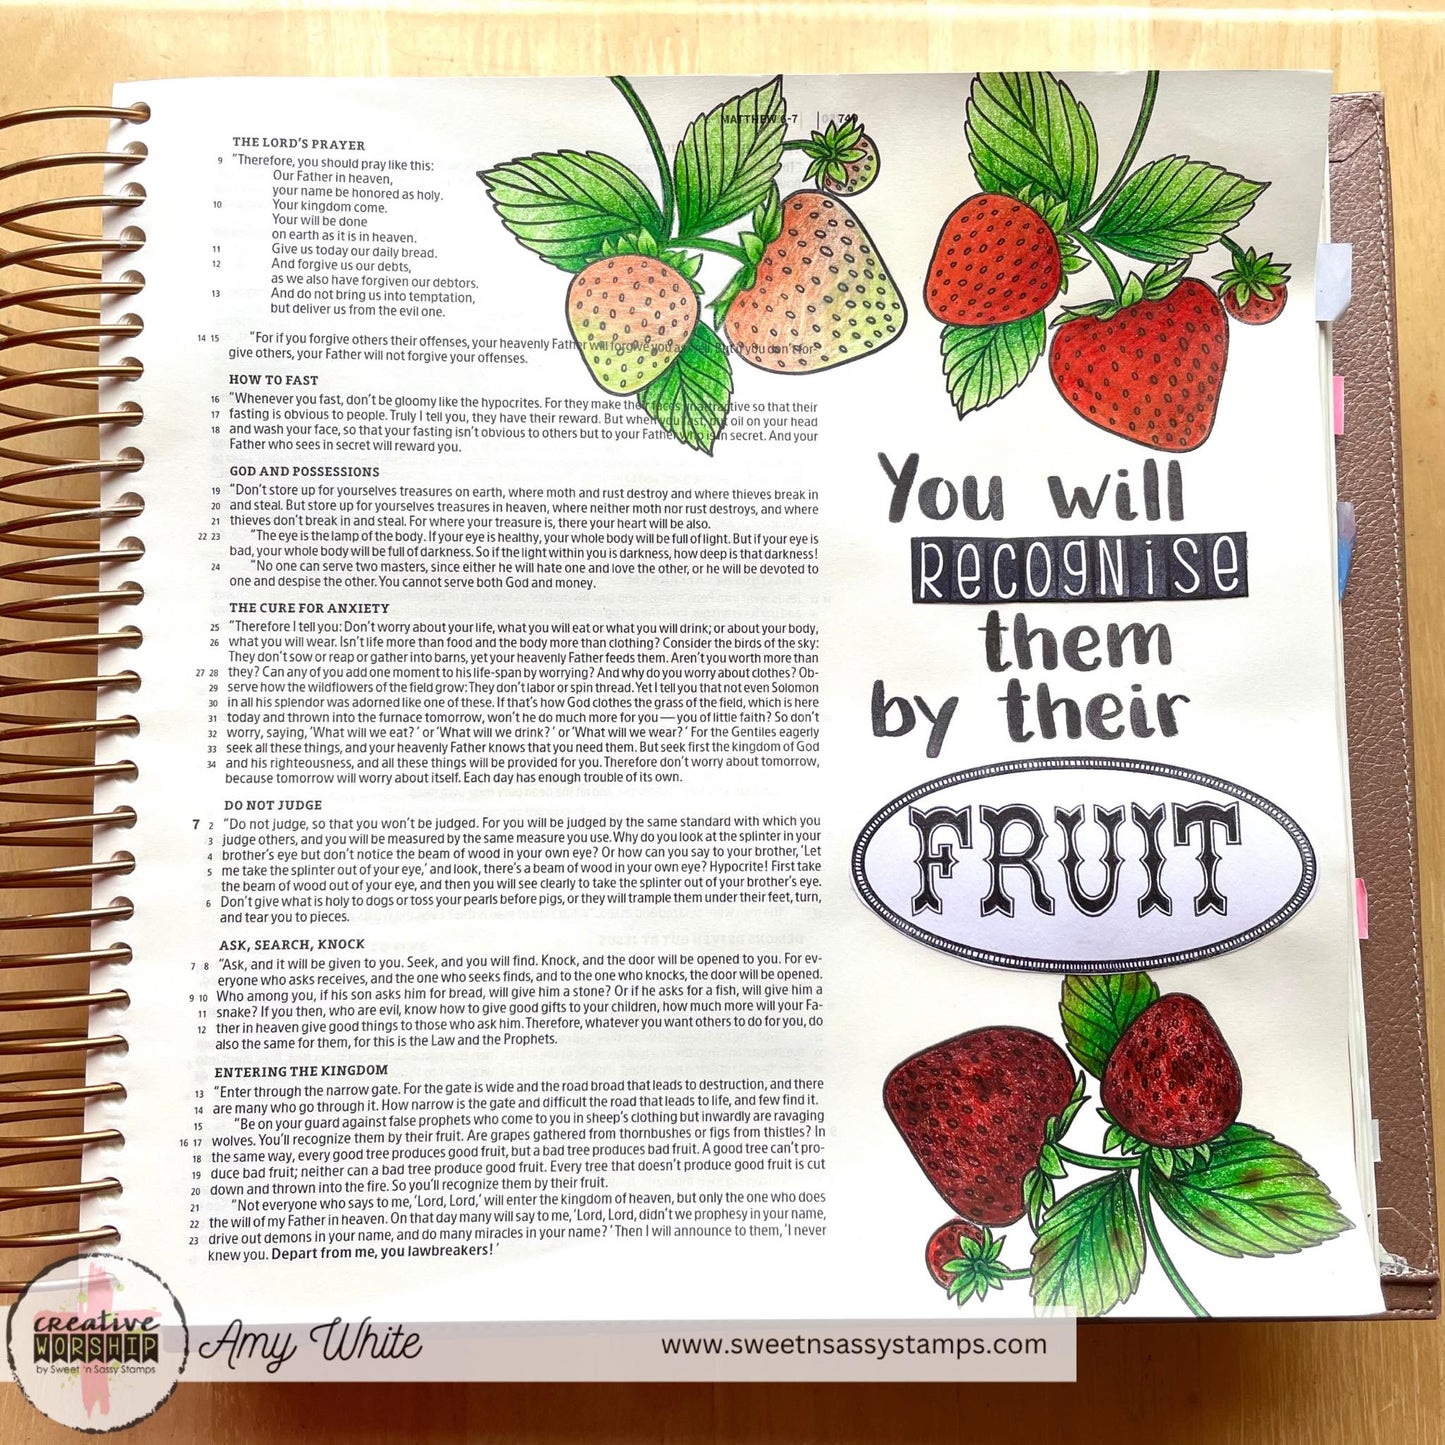 MATTHEW 6-7 749
THE LORD'S PRAYER
9 "Therefore, you should pray like this:
Our Father in heaven,
your name be honored as holy.
10 Your kingdom come.
Your will be done
on earth as it is in heaven.
11 Give us today our daily bread.
12 And forgive us our debts,
as we also have forgiven our debtors.
13 And do not bring us into temptation,
but deliver us from the evil one.
14 15 "For if you forgive others their offenses, your heavenly Father will forgive you as well. But if you don't for-
give others, your Father will not forgive your offenses.
HOW TO FAST
16 "Whenever you fast, don't be gloomy like the hypocrites. For they make their faces unattractive so that their
17 fasting is obvious to people. Truly I tell you, they have their reward. But when you fast, put oil on your head
18 and wash your face, so that your fasting isn't obvious to others but to your Father who is in secret. And your
Father who sees in secret will reward you.
GOD AND POSSESSIONS
19 "Don't store up for yourselves treasures on earth, where moth and rust destroy and where thieves break in
20 and steal. But store up for yourselves treasures in heaven, where neither moth nor rust destroys, and where
21 thieves don't break in and steal. For where your treasure is, there your heart will be also.
22 23 "The eye is the lamp of the body. If your eye is healthy, your whole body will be full of light. But if your eye is
bad, your whole body will be full of darkness. So if the light within you is darkness, how deep is that darkness!
24 "No one can serve two masters, since either he will hate one and love the other, or he will be devoted to
one and despise the other. You cannot serve both God and money.
THE CURE FOR ANXIETY
25 "Therefore I tell you: Don't worry about your life, what you will eat or what you will drink; or about your body,
26 what you will wear. Isn't life more than food and the body more than clothing? Consider the birds of the sky:
They don't sow or reap or gather into barns, yet your heavenly Father feeds them. Aren't you worth more than
27 28 they? Can any of you add one moment to his life-span by worrying? And why do you worry about clothes? Ob-
29 serve how the wildflowers of the field grow: They don't labor or spin thread. Yet I tell you that not even Solomon
30 in all his splendor was adorned like one of these. If that's how God clothes the grass of the field, which is here
31 today and thrown into the furnace tomorrow, won't he do much more for you — you of little faith? So don't
32 worry, saying, 'What will we eat?' or 'What will we drink?' or 'What will we wear?' For the Gentiles eagerly
33 seek all these things, and your heavenly Father knows that you need them. But seek first the kingdom of God
34 and his righteousness, and all these things will be provided for you. Therefore don't worry about tomorrow,
because tomorrow will worry about itself. Each day has enough trouble of its own.
DO NOT JUDGE
7 2 "Do not judge, so that you won't be judged. For you will be judged by the same standard with which you
3 judge others, and you will be measured by the same measure you use. Why do you look at the splinter in your
4 brother's eye but don't notice the beam of wood in your own eye? Or how can you say to your brother, 'Let
5 me take the splinter out of your eye,' and look, there's a beam of wood in your own eye? Hypocrite! First take
the beam of wood out of your eye, and then you will see clearly to take the splinter out of your brother's eye.
6 Don't give what is holy to dogs or toss your pearls before pigs, or they will trample them under their feet, turn,
and tear you to pieces.
ASK, SEARCH, KNOCK
7 8 "Ask, and it will be given to you. Seek, and you will find. Knock, and the door will be opened to you. For ev-
eryone who asks receives, and the one who seeks finds, and to the one who knocks, the door will be opened.
9 10 Who among you, if his son asks him for bread, will give him a stone? Or if he asks for a fish, will give him a
11 snake? If you then, who are evil, know how to give good gifts to your children, how much more will your Fa-
12 ther in heaven give good things to those who ask him. Therefore, whatever you want others to do for you, do
also the same for them, for this is the Law and the Prophets.
ENTERING THE KINGDOM
13 "Enter through the narrow gate. For the gate is wide and the road broad that leads to destruction, and there
14 are many who go through it. How narrow is the gate and difficult the road that leads to life, and few find it.
15 "Be on your guard against false prophets who come to you in sheep's clothing but inwardly are ravaging
16 17 wolves. You'll recognize them by their fruit. Are grapes gathered from thornbushes or figs from thistles? In
18 the same way, every good tree produces good fruit, but a bad tree produces bad fruit. A good tree can't pro-
19 duce bad fruit; neither can a bad tree produce good fruit. Every tree that doesn't produce good fruit is cut
20 down and thrown into the fire. So you'll recognize them by their fruit.
21 "Not everyone who says to me, 'Lord, Lord,' will enter the kingdom of heaven, but only the one who does
22 the will of my Father in heaven. On that day many will say to me, 'Lord, Lord, didn't we prophesy in your name,
23 drive out demons in your name, and do many miracles in your name?' Then I will announce to them, 'I never
knew you. Depart from me, you lawbreakers!'
You will
RECOGNISE
them
by their
FRUIT
creative
WORSHIP
by Sweet 'n Sassy Stamps
Amy White
www.sweetnsassystamps.com